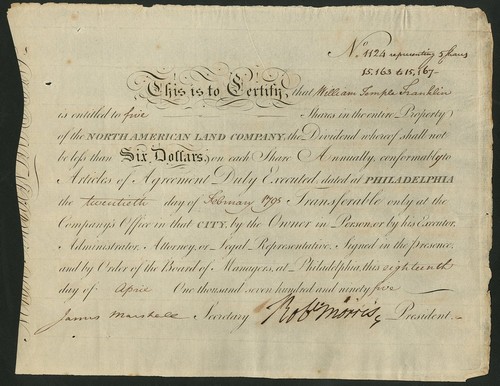 No. 1124 representing 5 Shares
15,163 to 15,167-
This is to Certify, that William Temple Franklin
is entitled to five Shares in the entire Property
of the NORTH AMERICAN LAND COMPANY, the Dividend whereof shall not
be less than Six Dollars, on each Share Annually, conformably to
Articles of Agreement Duly Executed, dated at PHILADELPHIA
the twentieth day of February 1795 Transferable only at the
Company's Office in that CITY, by the Owner in Person, or by his Executor,
Administrator, Attorney, or Legal Representative, Signed in the presence,
and by Order of the Board of Managers, at Philadelphia, this eighteenth
day of April One thousand seven hundred and ninety five
James Marshall Secretary Robt Morris President.